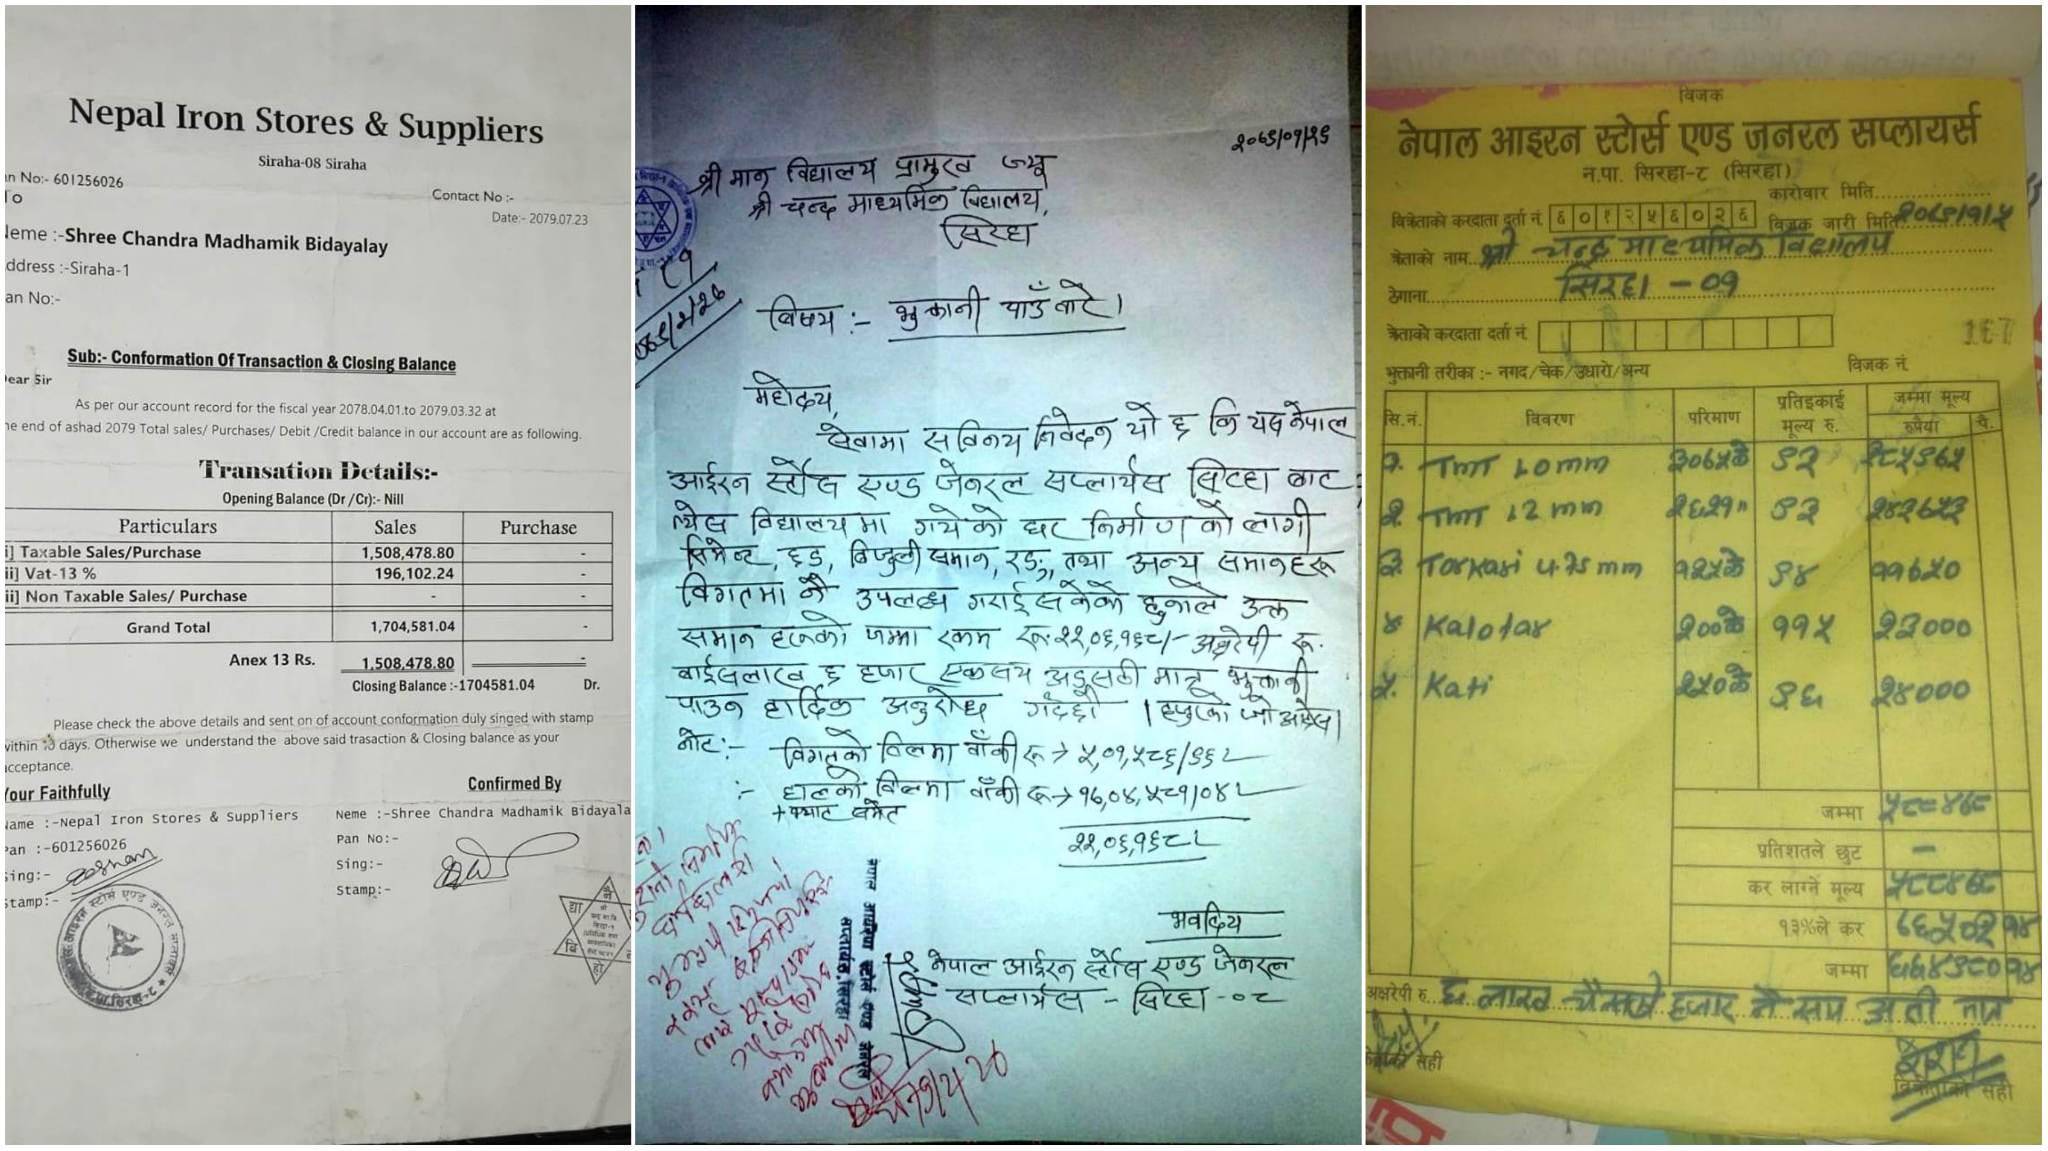 Nepal Iron Stores & Suppliers
Siraha-08 Siraha
an No:- 601256026
Contact No :-
To
Date:- 2079.07.23
Neme :-Shree Chandra Madhamik Bidayalay
ddress :-Siraha-1
an No:-
Sub:- Conformation Of Transaction & Closing Balance
ear Sir
As per our account record for the fiscal year 2078.04.01.to 2079.03.32 at
he end of ashad 2079 Total sales/ Purchases/ Debit /Credit balance in our account are as following.
Transation Details:-
Opening Balance (Dr /Cr):- Nill
Particulars Sales Purchase
i] Taxable Sales/Purchase 1,508,478.80 -
ii] Vat-13 % 196,102.24 -
ii] Non Taxable Sales/ Purchase - -
Grand Total 1,704,581.04 -
Anex 13 Rs. 1,508,478.80 -
Closing Balance :-1704581.04 Dr.
Please check the above details and sent on of account conformation duly singed with stamp
within days. Otherwise we understand the above said trasaction & Closing balance as your
acceptance.
Your Faithfully
Confirmed By
Name :-Nepal Iron Stores & Suppliers
Neme :-Shree Chandra Madhamik Bidayala
Pan :-601256026
Pan No:-
Sing:-
Sing:-
Stamp:-
Stamp:-
श्री मान विद्यालय प्रामुख ज्यू
श्री चन्द्र माध्यमिक विद्यालय,
सिरहा
विषय :- भुक्तानी पाउँ बारे।
महोदय,
सेवामा सविनय निवेदन यो छ कि यस नेपाल
आईरन स्टोर्स एण्ड जेनरल सप्लायर्स सिरहा बाट
त्येस विद्यालयमा गयेको घर निर्माणको लागी
सिमेन्ट, छड, बिजुली समान, रङ्ग, तथा अन्य समानहरू
विगतमा नै उपलब्ध गराईसकेको हुनाले उक्त
समान हरूको जम्मा रकम रू.२२,०६,१६८/- अक्षेरेपी रू.
बाईसलाख ६ हजार एकसय अड्सठी मात्र भुक्तानी
पाउन हार्दिक अनुरोध गर्दछौ
नोट:- विगतको विलमा बाँकी रू → ५,०१,५८६/९६
:- हालको विलमा बाँकी रू → १७,०४,५८१/०४
+ भ्याट समेत
२२,०६,१६८
भवदिय
नेपाल आईरन स्टोर्स एण्ड जेनरल
सप्लायर्स - सिरहा - ०८
विजक
नेपाल आइरन स्टोर्स एण्ड जनरल सप्लायर्स
न.पा. सिरहा-८ (सिरहा)
कारोवार मिति
विक्रेताको करदाता दर्ता नं. ६०१२५६०२६ विजक जारी मिति
क्रेताको नाम श्री चन्द्र माध्यमिक विद्यालय
ठेगाना सिरहा - ०१
क्रेताको करदाता दर्ता नं. 167
भुक्तानी तरीका :- नगद/चेक/उधारो/अन्य विजक नं.
सि.नं. विवरण परिमाण प्रतिइकाई मूल्य रु. जम्मा मूल्य
रुपैयाँ पै.
१. TMT 10mm ३०७५के ९३ २८५९७५
२. TMT 12 mm २६२१" ९३ २४३७५३
३. Tarkari 4.75mm १२५के ९४ ११७५०
४ Kalotar २००के ११५ २३०००
५. Kati २५०के ९६ २४०००
जम्मा ५८८४७८
प्रतिशतले छुट -
कर लाग्ने मूल्य ५८८४७८
१३%ले कर ७६५०२ १४
जम्मा ६६४९८० १४
अक्षरेपी रु. ६ लाख चौसठ्ठी हजार नौ सय अस्सी मात्र
क्रेताको सही
विक्रेताको सही